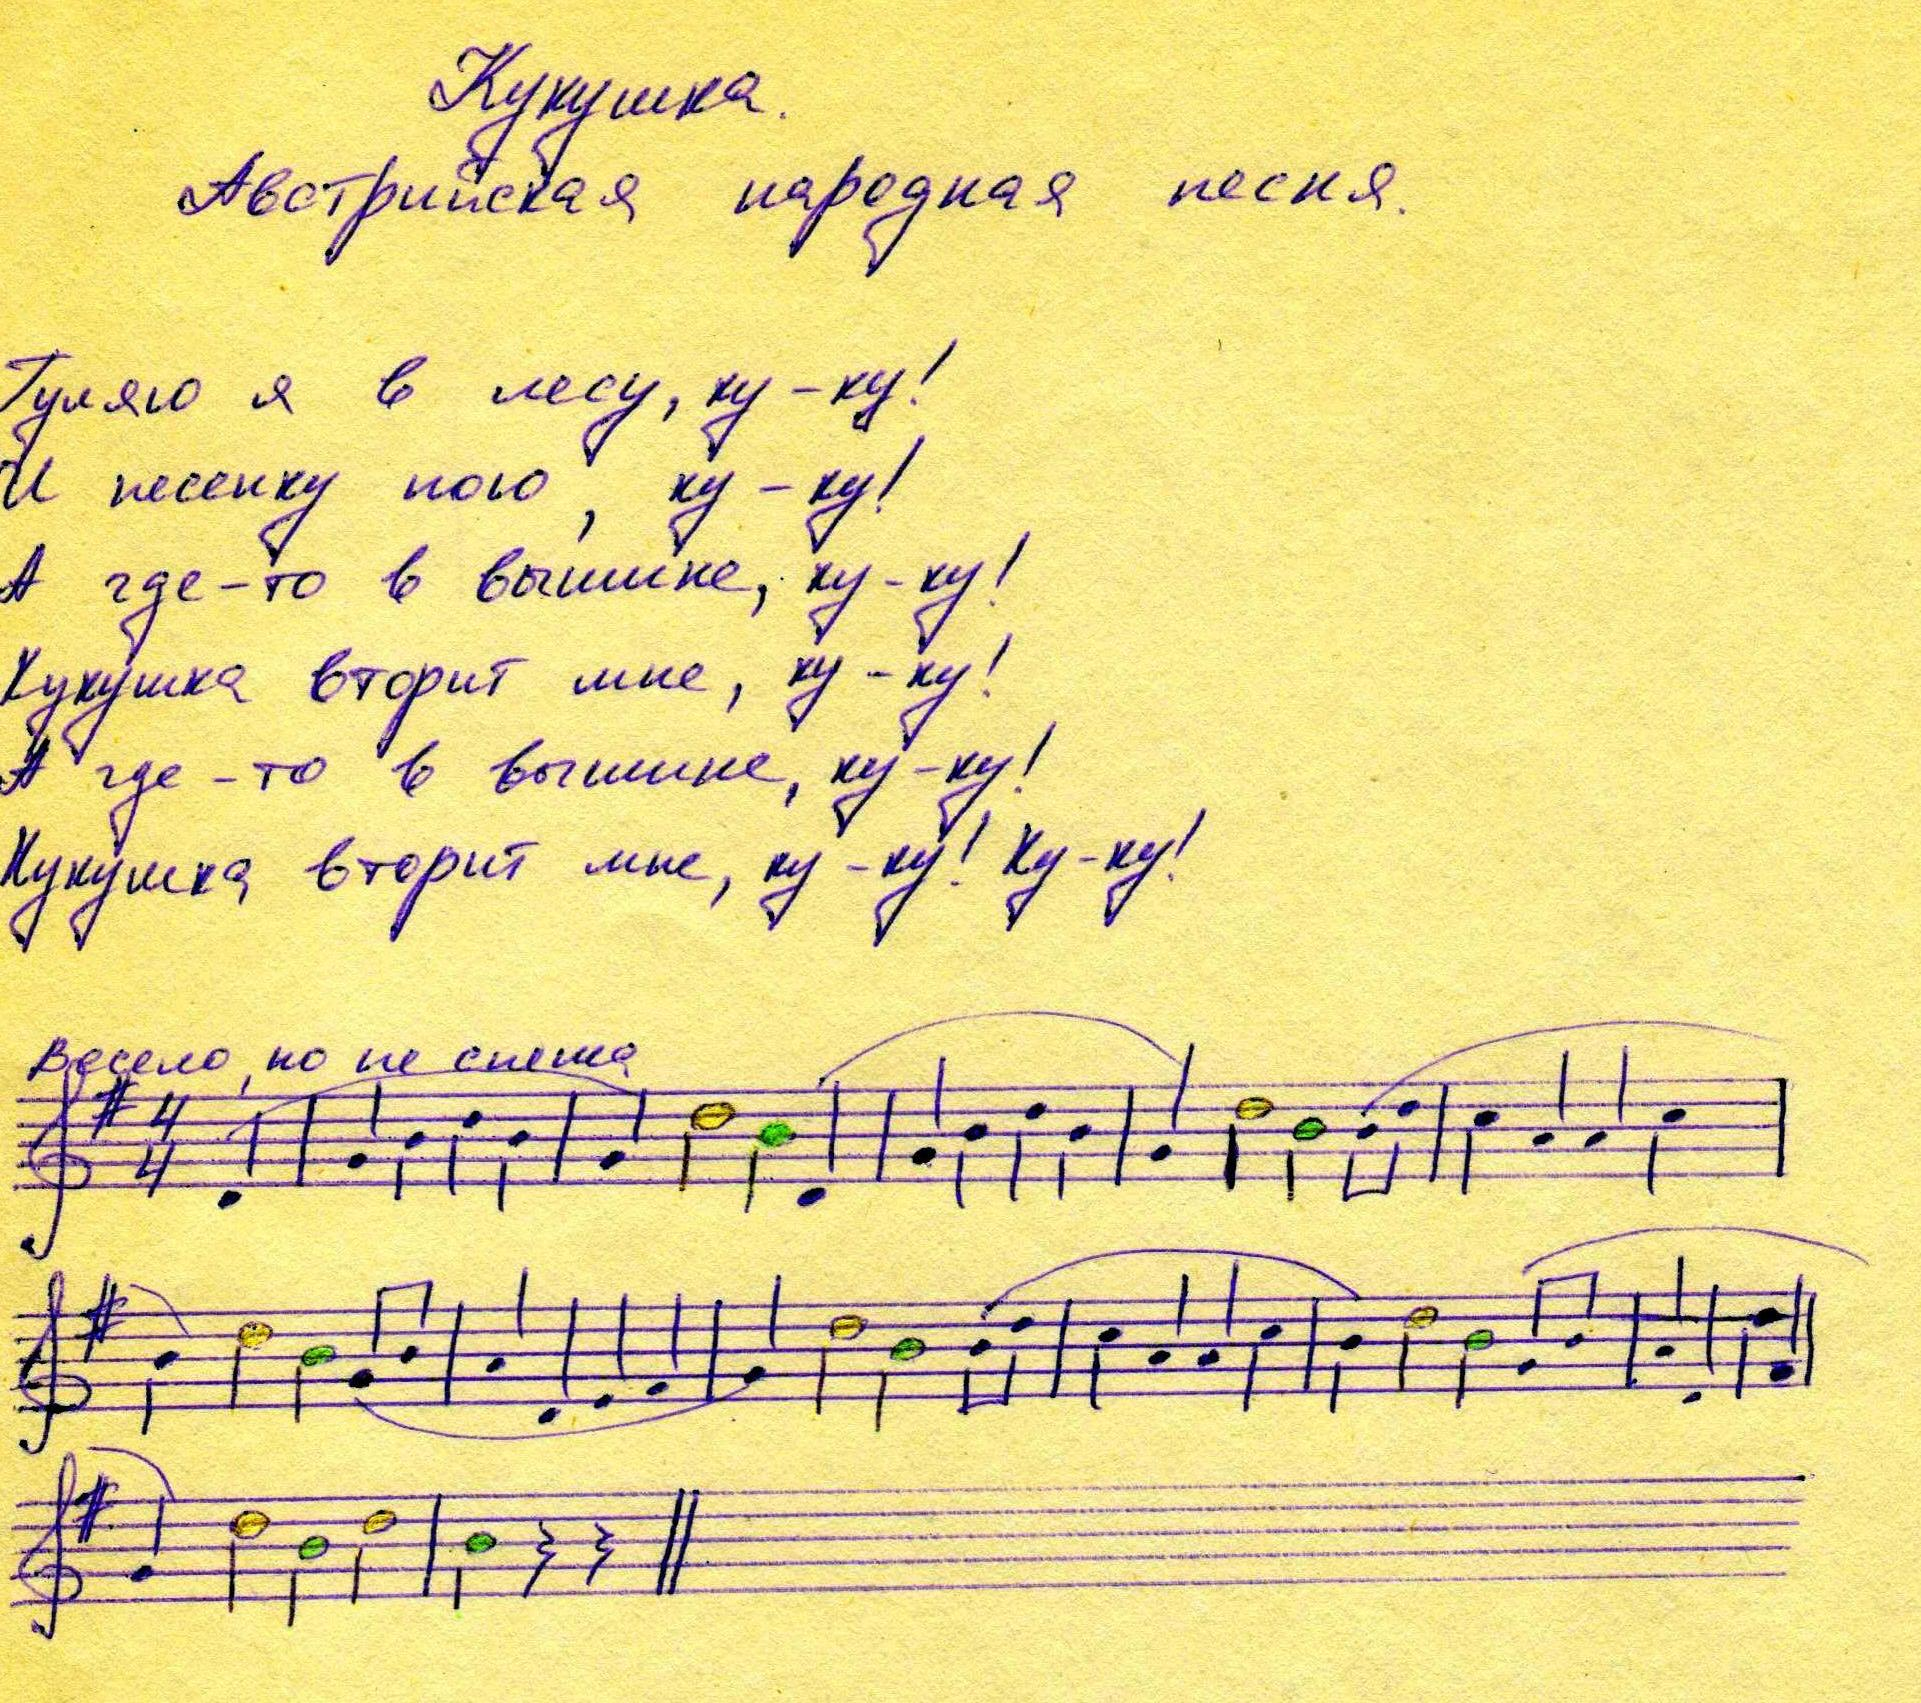 Кукушка.
Австрийская народная песня.
Гуляю я в лесу, ку-ку!
И песенку пою, ку-ку!
А где-то в вышине, ку-ку!
Кукушка вторит мне, ку-ку!
А где-то в вышине, ку-ку!
Кукушка вторит мне, ку-ку! Ку-ку!
Весело, но не спеша
4
4